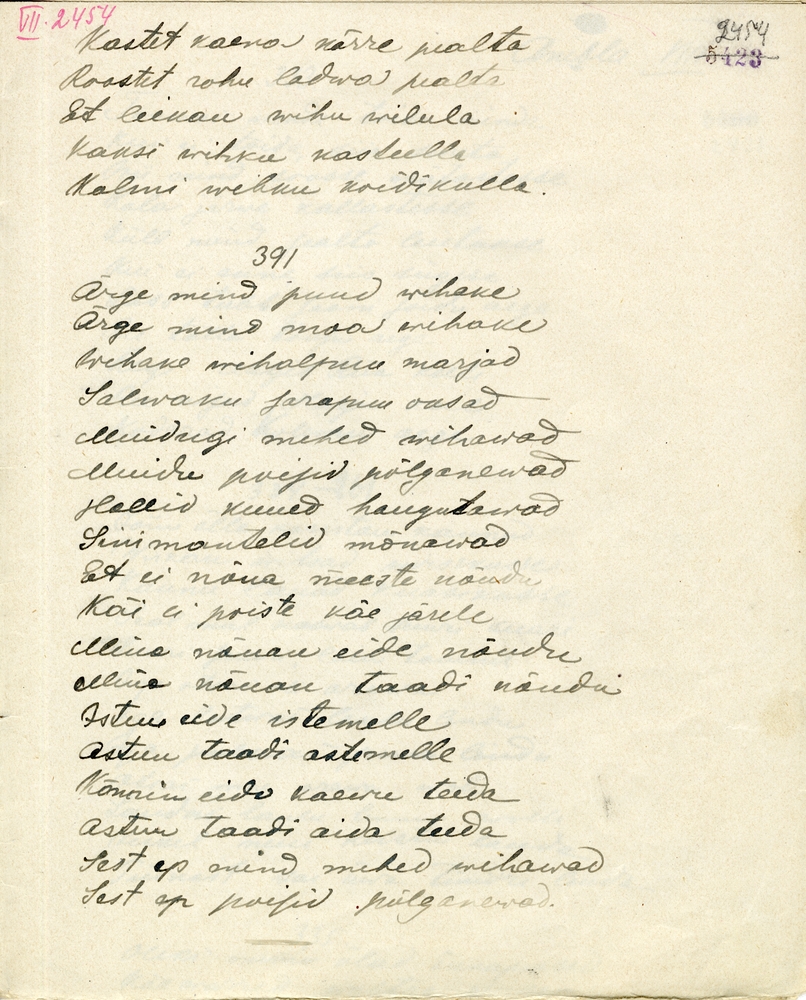 VII. 2454
2454
5423
Kastet kaera kõrre pealta
Roostet rohu ladwa pealta
Et leikan wihu wilula
Kaksi wihku kasteella
Kolmi wihku koidikulla.
391
Ärge mind puud wihake
Ärge mind maa wihake
Wihake wihalpuu marjad
Salwaku sarapuu oksad
Muidugi mehed wihawad
Muidu poisid põlganewad
Hallid kuued haugutawad
Sinimantelid mõnawad
Et ei nõua meeste nõudu
Käi ei poiste käe järele
Mina nõuan eide nõudu
Mina nõuan taadi nõudu
Istun eide istemelle
Astun taadi astemelle
Kõnnin eide kaewu teeda
Astun taadi aida teeda
Sest ep mind mehed wihawad
Sest ep poisid põlganewad.